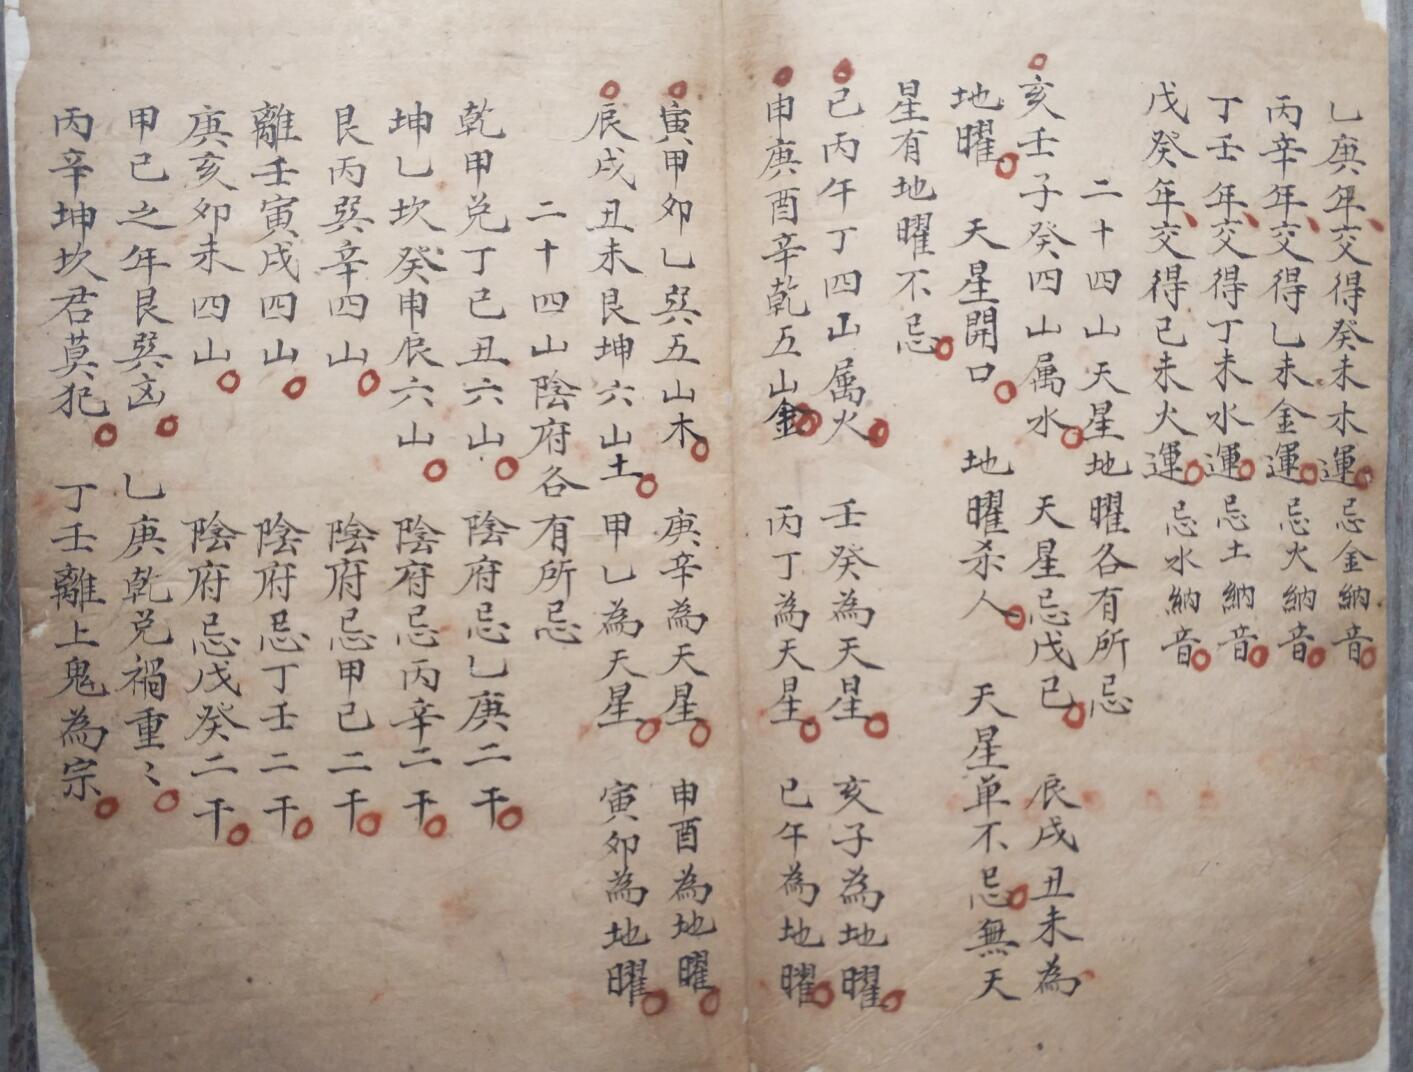 乙庚年交得癸未木運忌金納音
丙辛年交得乙未金運忌火納音
丁壬年交得丁未水運忌土納音
戊癸年交得己未火運忌水納音
二十四山天星地曜各有所忌
亥壬子癸四山属水 天星忌戊己 辰戌丑未為
地曜 天星開口 地曜杀人 天星单不忌無天
星有地曜不忌
巳丙午丁四山属火 壬癸為天星 亥子為地曜
申庚酉辛乾五山金 丙丁為天星 巳午為地曜
寅甲卯乙巽五山木 庚辛為天星 申酉為地曜
辰戌丑未艮坤六山土 甲乙為天星 寅卯為地曜
二十四山陰府各有所忌
乾甲兑丁巳丑六山 陰府忌乙庚二干
坤乙坎癸申辰六山 陰府忌丙辛二干
艮丙巽辛四山 陰府忌甲己二干
離壬寅戌四山 陰府忌丁壬二干
庚亥卯未四山 陰府忌戊癸二干
甲己之年艮巽凶 乙庚乾兑禍重〻
丙辛坤坎君莫犯 丁壬離上鬼為宗